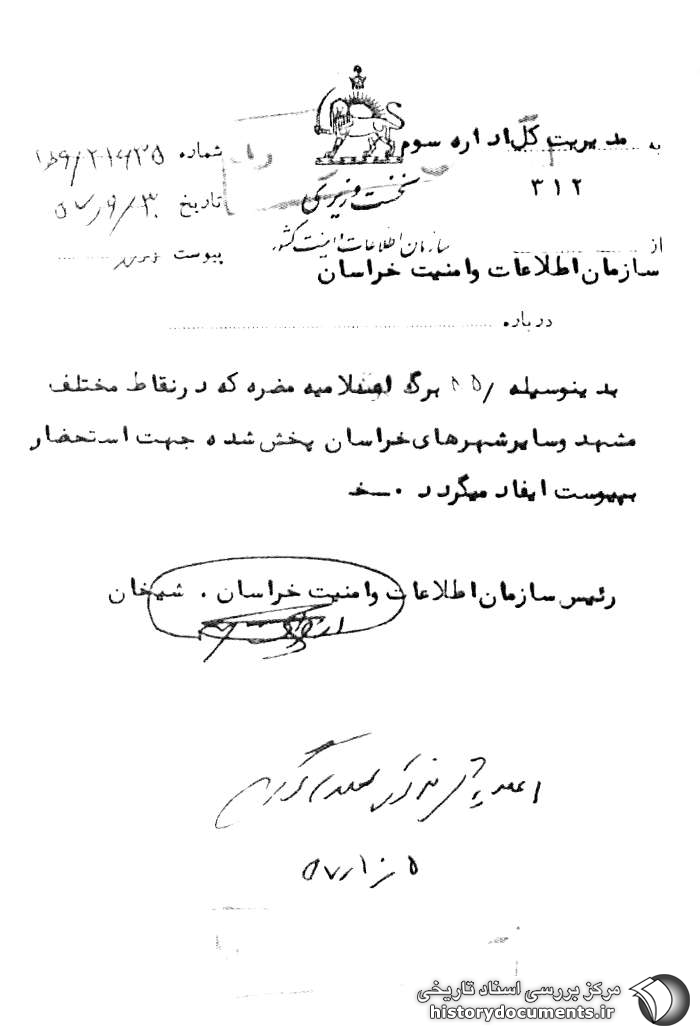 به مدیریت کل اداره سوم
۳۱۲
شماره
نخست وزیری
تاریخ ۵۷/۹/۳۰
سازمان اطلاعات و امنیت کشور
از سازمان اطلاعات وامنیت خراسان
پیوست
درباره
بدینوسیله برگ اعلامیه مضره که درنقاط مختلف
مشهد وسایرشهرهای خراسان پخش شده جهت استحضار
بپیوست ایفاد میگردد ۰ـخـ
رئیس سازمان اطلاعات وامنیت خراسان . شیخان
مرکز بررسی اسناد تاریخی
historydocuments.ir